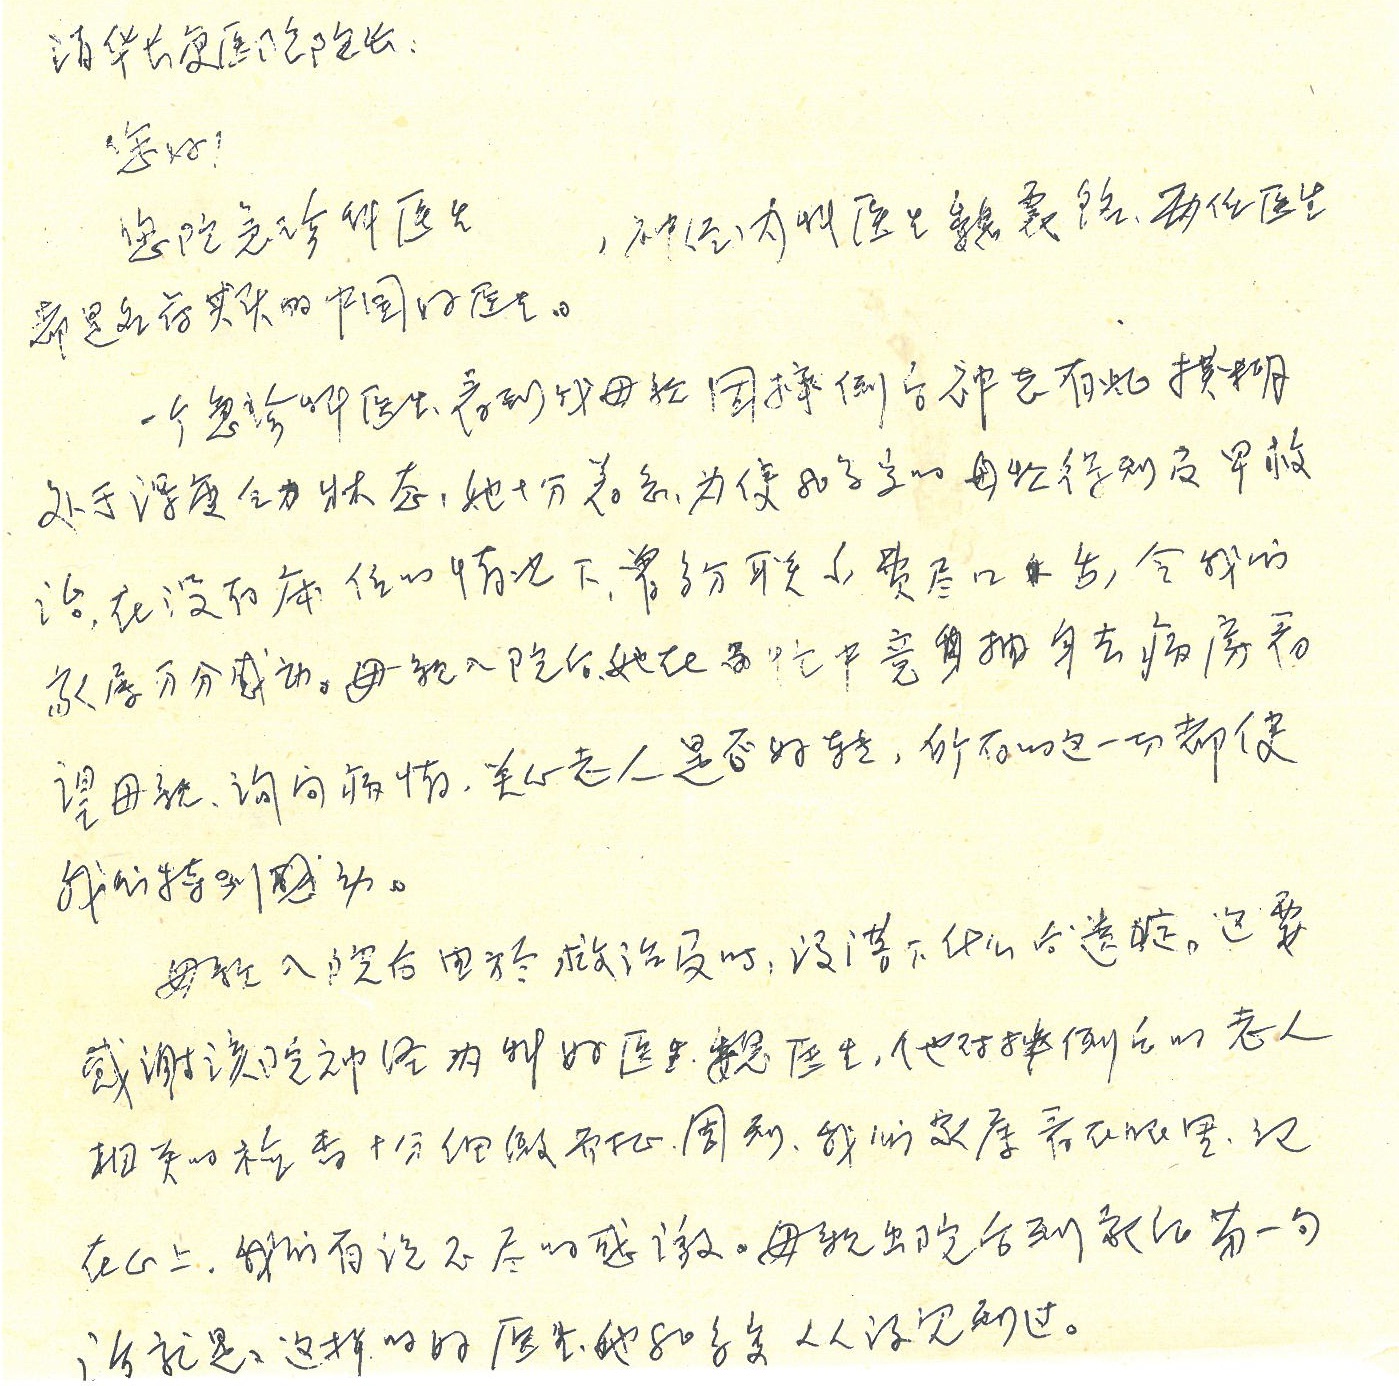 清华长庚医院院长:
您好!
您院急诊科医生 ,神经内科医生魏宸铭、两位医生
都是名符其实的中国好医生。
一个急诊科医生、看到我母亲因摔倒后神志有些模糊
处于深度全力状态,她十分着急、为使80多岁的母亲得到及早救
治,在没有床位的情况下,多方联系,费尽口舌,令我们
家属万分感动。母亲入院后她在百忙中竟抽身去病房看
望母亲、询问病情、关心老人是否好转,所有的这一切都使
我们特别感动。
母亲入院后由于救治及时,没落下什么后遗症。这要
感谢该院神经内科好医生魏医生,他对摔倒后的老人
相关的检查十分细微 周到、我们家属看在眼里、记
在心上,我们有说不尽的感激。母亲出院后到家的第一句
话就是、这样的好医生、她80多岁人从没见到过。